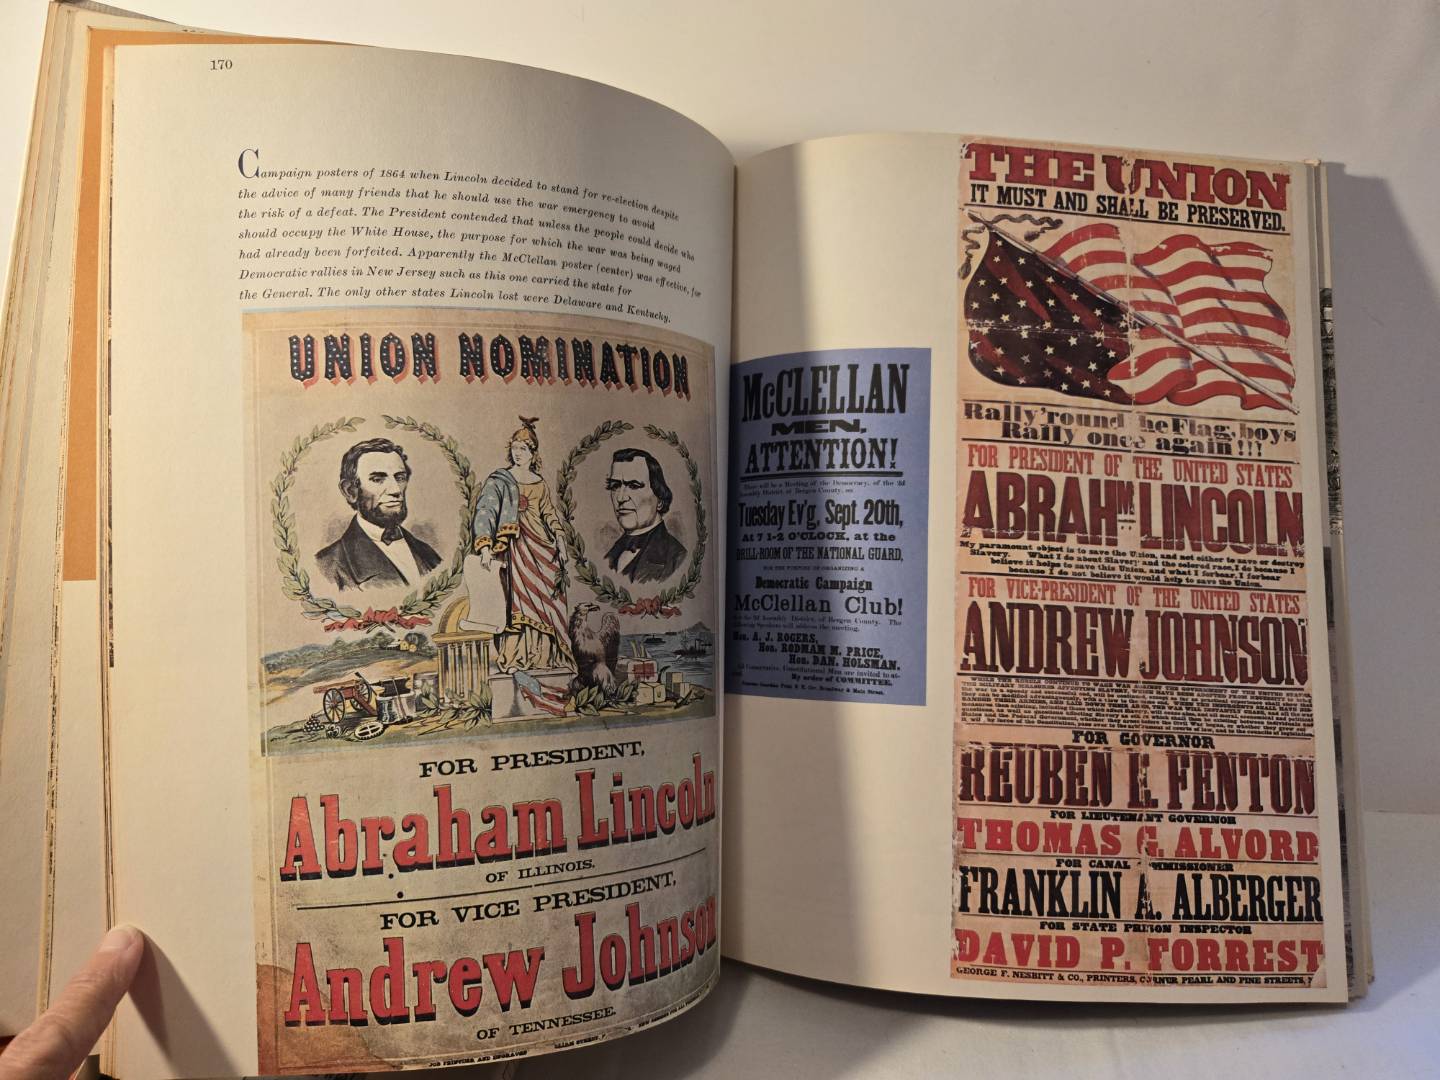 170
Campaign posters of 1864 when Lincoln decided to stand for re-election despite
the advice of many friends that he should use the war emergency to avoid
the risk of a defeat. The President contended that unless the people could decide who
should occupy the White House, the purpose for which the war was being waged
had already been forfeited. Apparently the McClellan poster (center) was effective, for
Democratic rallies in New Jersey such as this one carried the state for
the General. The only other states Lincoln lost were Delaware and Kentucky.
UNION NOMINATION
FOR PRESIDENT,
Abraham Lincoln
OF ILLINOIS.
FOR VICE PRESIDENT,
Andrew Johnson
OF TENNESSEE.
JOB PRINTING AND
McCLELLAN
MEN,
ATTENTION!
There will be a Meeting of the Democracy, of the 2d
Assembly District of Bergen County, on
Tuesday Ev'g, Sept. 20th,
At 7 1-2 O'CLOCK, at the
DRILL-ROOM OF THE NATIONAL GUARD,
FOR THE PURPOSE OF ORGANIZING A
Democratic Campaign
McClellan Club!
the 2d Assembly District, of Bergen County. The
following Speakers will address the meeting.
Hon. A. J. ROGERS,
Hon. RODMAN M. PRICE,
Hon. DAN. HOLSMAN.
All Conservative, Constitutional Men are invited to at-
By order of COMMITTEE.
THE UNION
IT MUST AND SHALL BE PRESERVED.
Rally 'round the Flag, boys
Rally once again!!!
FOR PRESIDENT OF THE UNITED STATES
ABRAHM LINCOLN
My paramount object is to save the Union, and not either to save or destroy
Slavery. What I do about Slavery and the colored race, I do because I
believe it helps to save this Union, and what I forbear, I forbear
because I do not believe it would help to save the Union.
FOR VICE-PRESIDENT OF THE UNITED STATES
ANDREW JOHNSON
FOR GOVERNOR
REUBEN E. FENTON
FOR LIEUTENANT GOVERNOR
THOMAS G. ALVORD
FOR CANAL COMMISSIONER
FRANKLIN A. ALBERGER
FOR STATE PRISON INSPECTOR
DAVID P. FORREST
GEORGE F. NESBITT & CO., PRINTERS, CORNER PEARL AND PINE STREETS,